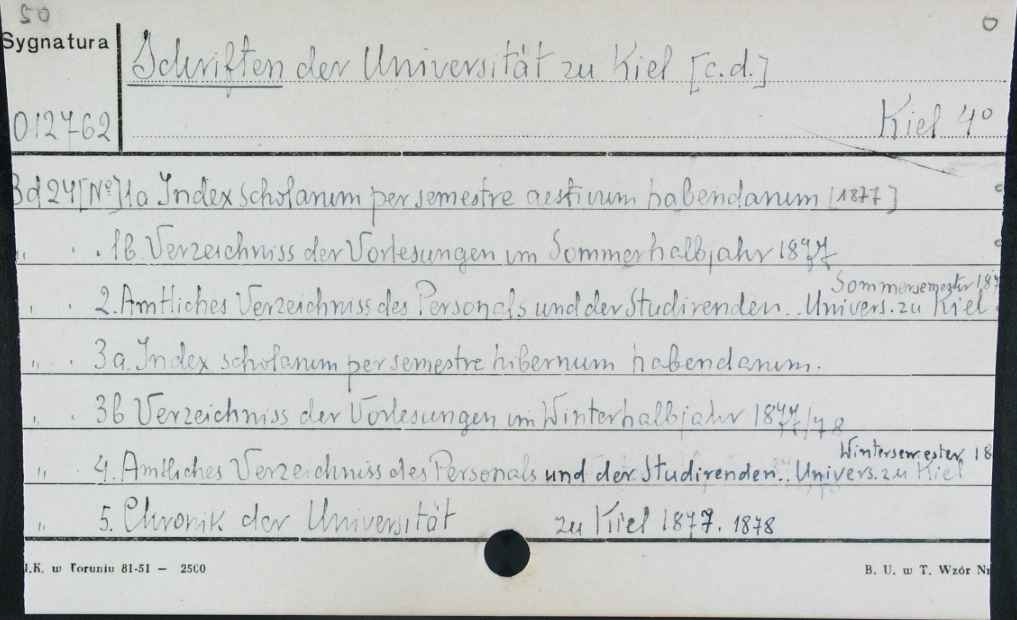 50
0
Sygnatura
Schriften der Universität zu Kiel [c.d.]
012762
Kiel 4°
Bd 24 [N°] 1a Index scholarum per semestre aestivum habendarum [1877]
" . . 1b. Verzeichniss der Vorlesungen im Sommerhalbjahr 1877
Sommersemester 187
" . 2. Amtliches Verzeichniss des Personals und der Studirenden.. Univers. zu Kiel
" . 3a. Index scholarum per semestre hibernum habendarum.
" . 3b Verzeichniss der Vorlesungen im Winterhalbjahr 1877/78
Wintersemester 18
" . 4. Amtliches Verzeichniss des Personals und der Studirenden.. Univers. zu Kiel
" 5. Chronik der Universität zu Kiel 1877. 1878
I.K. w Toruniu 81-51 — 2500
B. U. w T. Wzór Nr